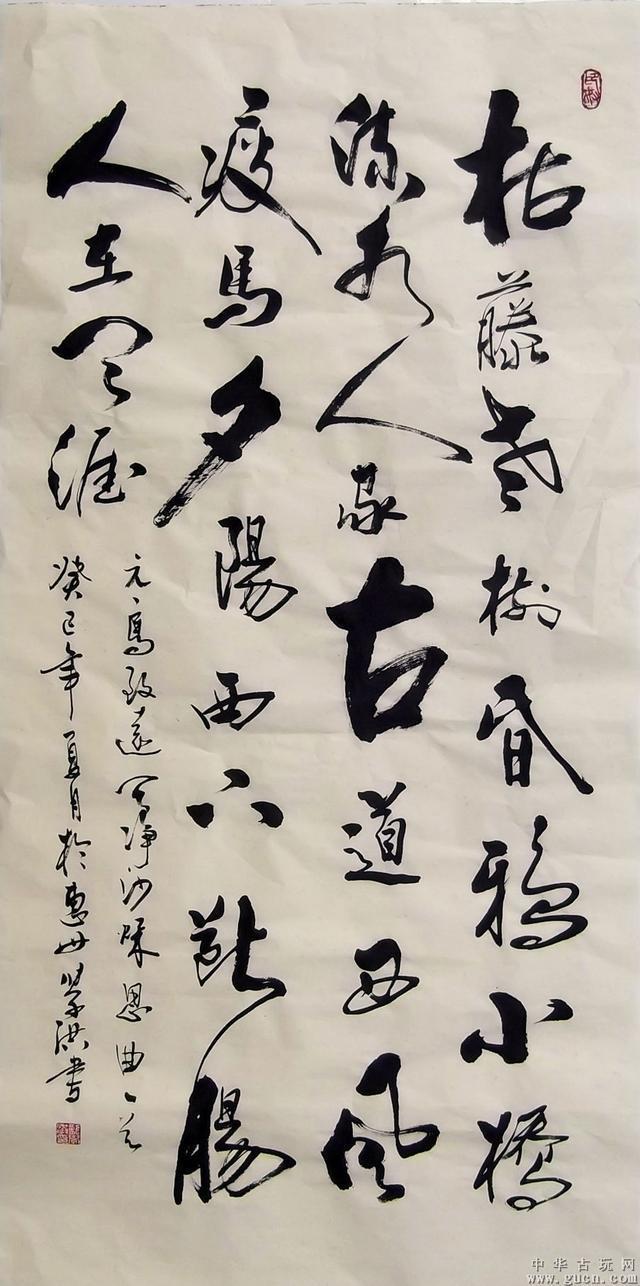 枯藤老樹昏鴉小橋
流水人家古道西風
瘦馬夕陽西下斷腸
人在天涯
元馬致遠天净沙秋思曲一首
癸巳年夏月於惠洪書
中华古玩网
www.gucn.com